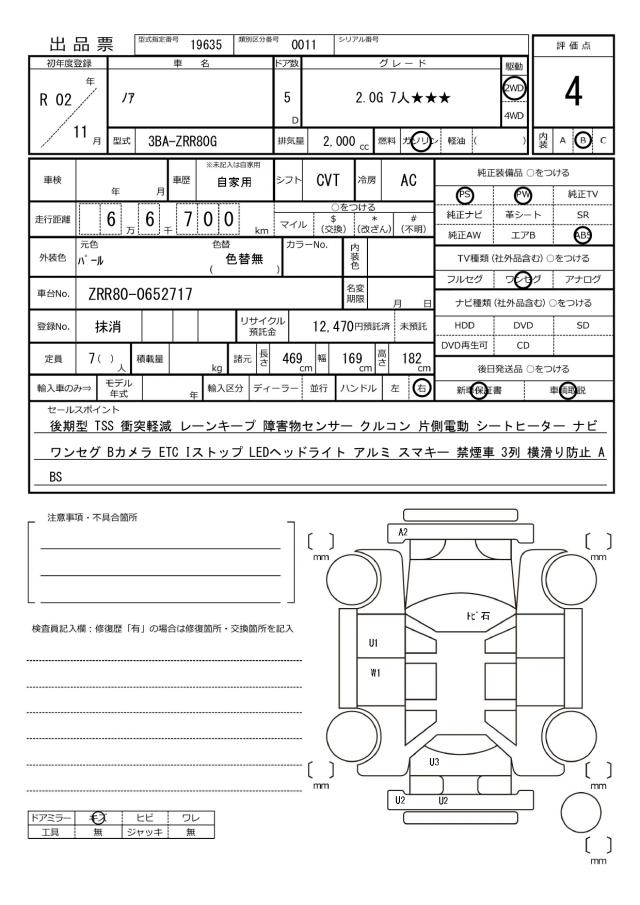 出品票 型式指定番号 19635 類別区分番号 0011 シリアル番号
評価点
初年度登録 車名 ドア数 グレード 駆動
R 02 年 11 月 ノア 5 D 2.0G 7人★★★ 2WD 4WD
4
型式 3BA-ZRR80G 排気量 2,000 cc 燃料 ガソリン 軽油 ( )
内装 A B C
車検 年 月 車歴 ※未記入は自家用 自家用 シフト CVT 冷房 AC
純正装備品 ○をつける
PS PW 純正TV
純正ナビ 革シート SR
純正AW エアB ABS
走行距離 6 万 6 千 7 0 0 km
○をつける
マイル $ (交換) * (改ざん) # (不明)
外装色 元色 パール 色替 ( 色替無 ) カラーNo. 内装色
TV種類(社外品含む)○をつける
フルセグ ワンセグ アナログ
車台No. ZRR80-0652717 名変期限 月 日
ナビ種類(社外品含む)○をつける
HDD DVD SD
DVD再生可 CD
登録No. 抹消 リサイクル預託金 12,470円預託済 未預託
定員 7( ) 人 積載量 kg 諸元 長さ 469 cm 幅 169 cm 高さ 182 cm
後日発送品 ○をつける
新車保証書 車輌取説
輸入車のみ⇒ モデル年式 年 輸入区分 ディーラー 並行 ハンドル 左 右
セールスポイント
後期型 TSS 衝突軽減 レーンキープ 障害物センサー クルコン 片側電動 シートヒーター ナビ
ワンセグ Bカメラ ETC Iストップ LEDヘッドライト アルミ スマキー 禁煙車 3列 横滑り防止 A
BS
注意事項・不具合箇所
検査員記入欄：修復歴「有」の場合は修復箇所・交換箇所を記入
A2
mm
mm
トビ石
U1
W1
U3
mm
mm
U2 U2
mm
ドアミラー キズ ヒビ ワレ
工具 無 ジャッキ 無